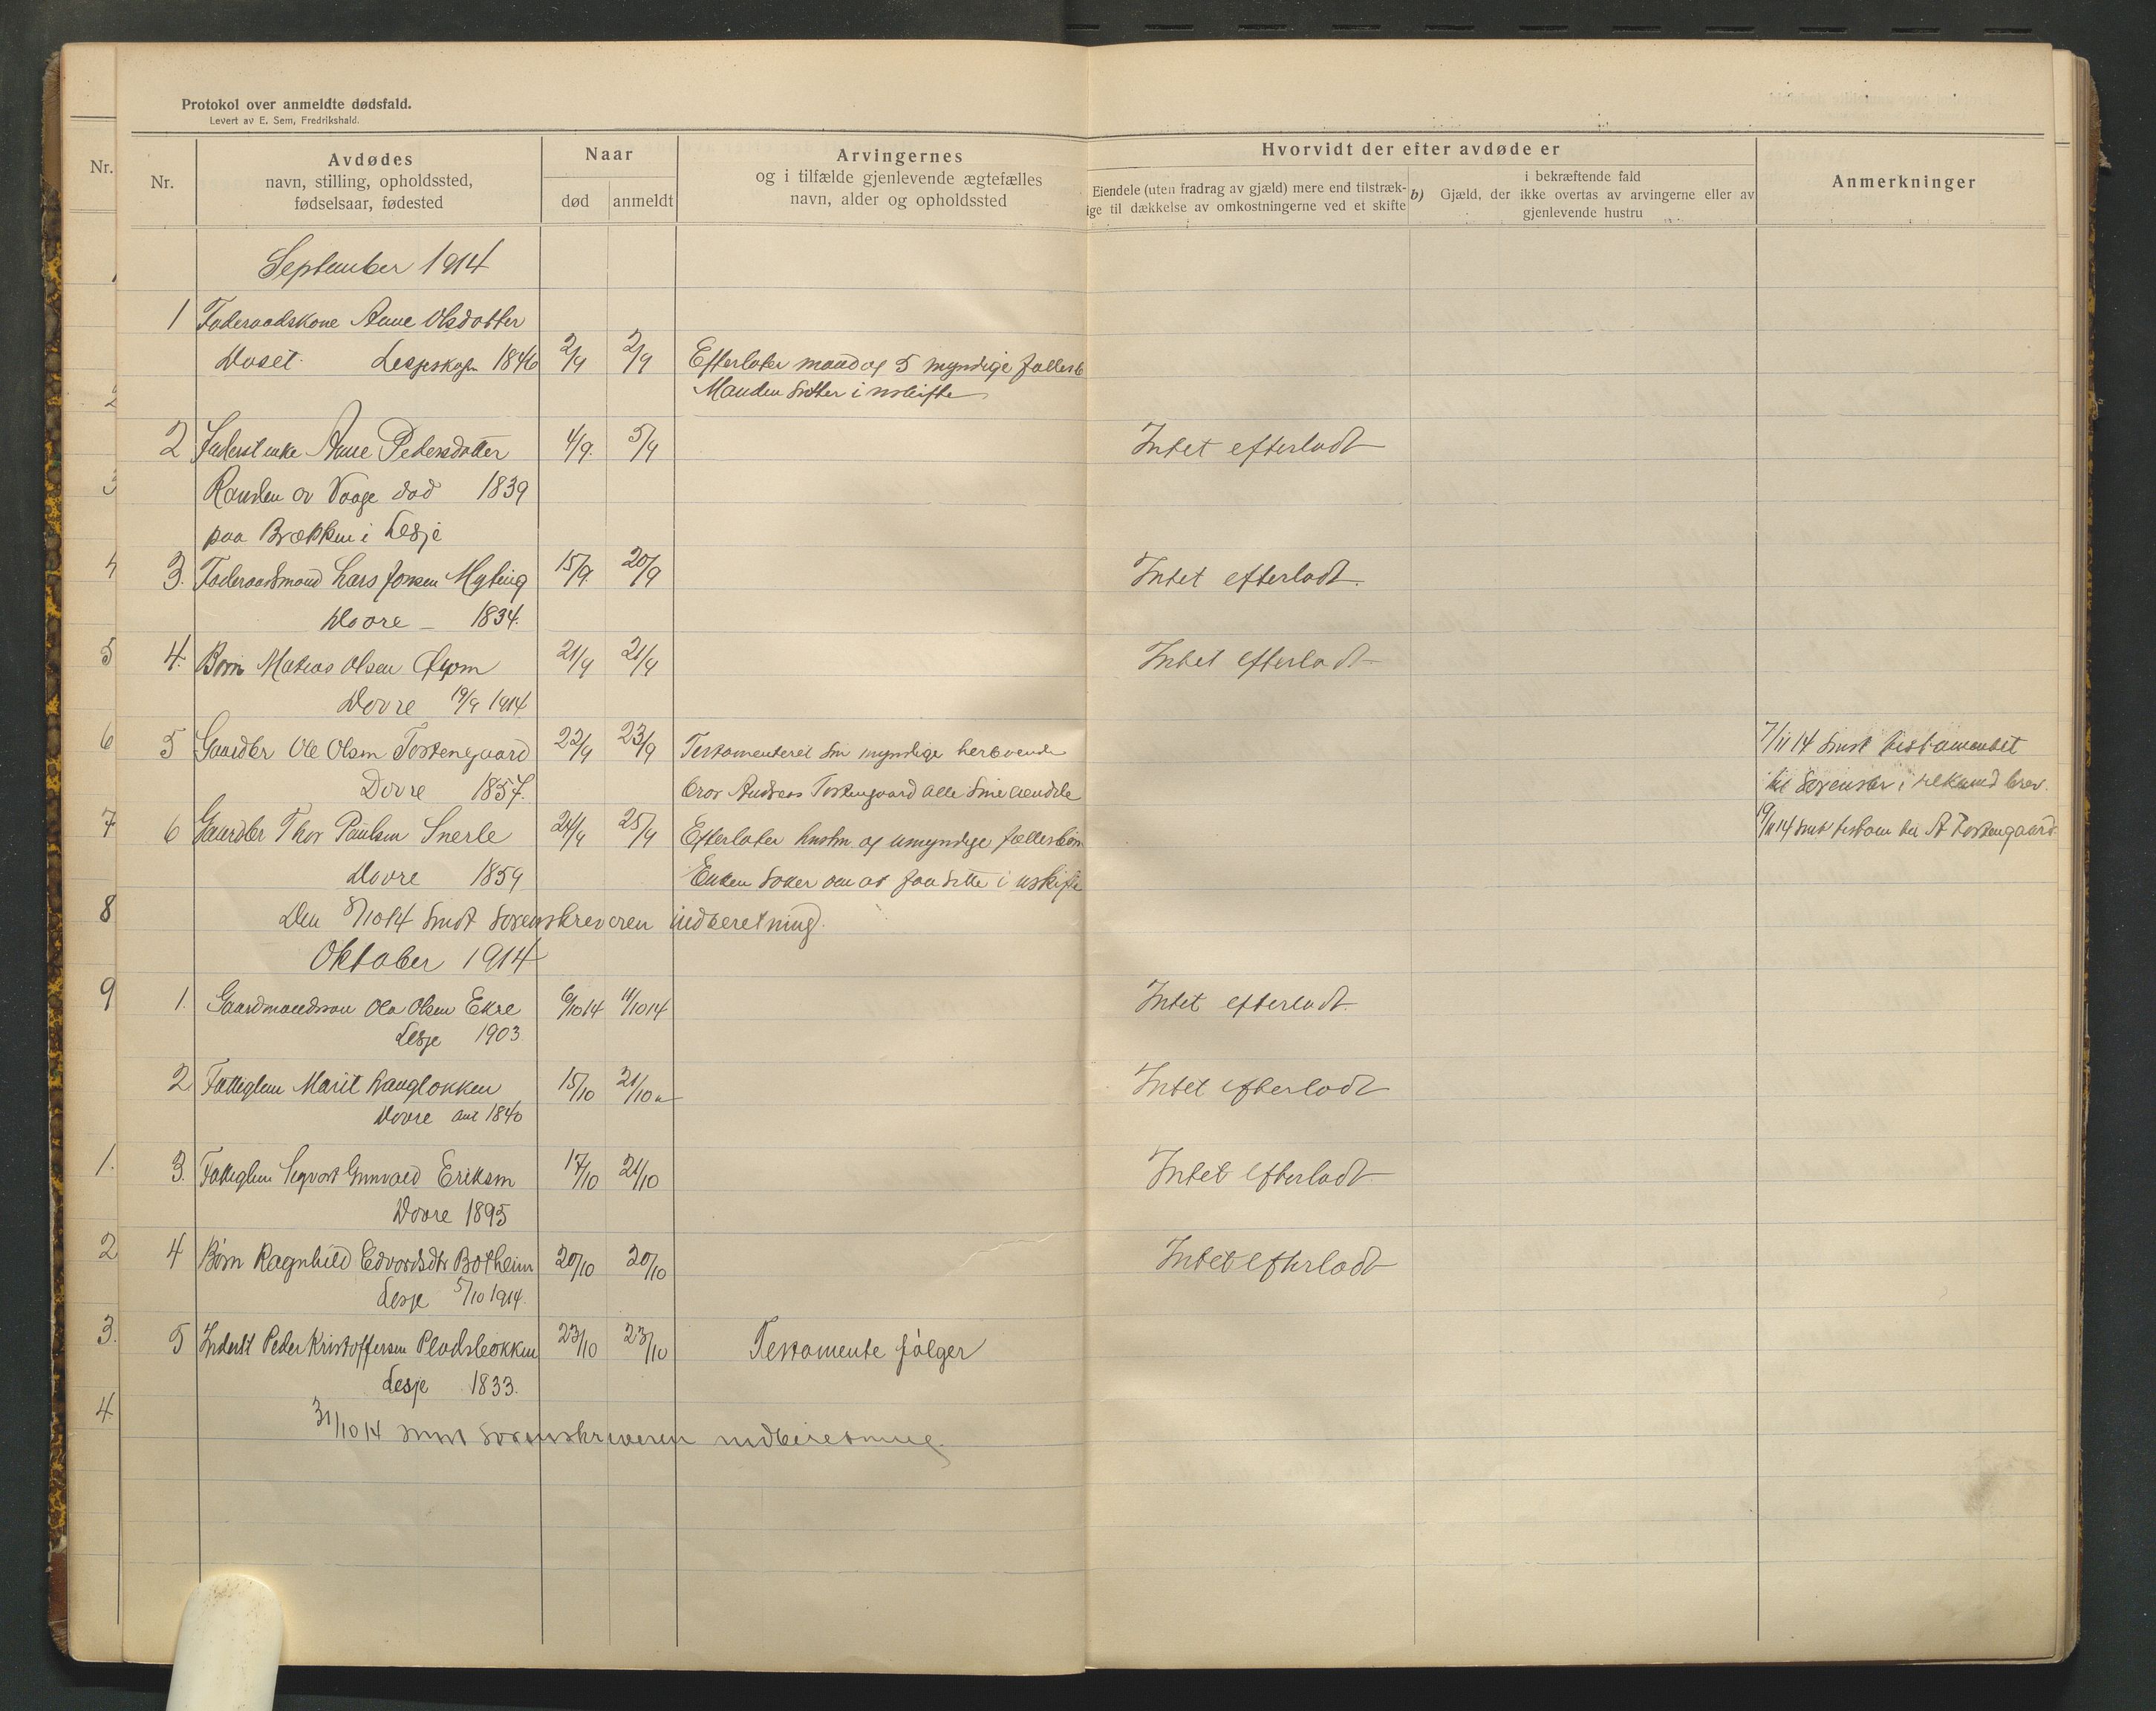 Protokol over anmeldte dødsfald.
Levert av E. Sem, Fredrikshald.
Nr.
Nr.
Avdødes
navn, stilling, opholdssted,
fødselsaar, fødested
Naar
død
anmeldt
Arvingernes
og i tilfælde gjenlevende ægtefælles
navn, alder og opholdssted
Hvorvidt der efter avdøde er
Eiendele (uten fradrag av gjæld) mere end tilstræk-
ige til dækkelse av omkostningerne ved et skifte
i bekræftende fald
b) Gjæld, der ikke overtas av arvingerne eller av
gjenlevende hustru
Anmerkninger
September 1914
1 Føderaadskone Anne Olsdatter
Lesjeskogn 1846 2/9 2/9 Efterlater mand og 5 myndige
Manden sitter i uskifte
2 Inderst enke Anne Pedersdatter 4/9. 5/9 Intet efterladt
Randen av Vaage død 1839
paa Brækken i Lesje
3. Føderaadsmand Lars Jonsen 15/9. 20/9 Intet efterladt.
Dovre – 1834.
4. Barn Matias Olsen 21/9 21/9 Intet efterladt
Dovre 19/9 1914
5 Gaardbr Ole Olsen Tostengaard 22/9 23/9 Testamenteret sin myndige
7/11 14 sendt testamentet
Dovre 1857. bror Andreas Tostengaard alle sine
til Sorenskr i rekomd brev.
6 Gaardbr Thor Paulsen Snerle 24/9 25/9 Efterlater hustru og umyndige fællesbørn
19/11 14 sendt testam til A Tostengaard
Dovre 1859 Enken søker om at faa sitte i uskifte
Den 8/10 14 sendt Sorenskriveren indberetning.
Oktober 1914
1. Gaardmandssøn Ola Olsen Ekre 6/10 14 11/10 14 Intet efterladt.
Lesje 1903
2 Fattiglem Marit Haugløkken 15/10 21/10 Intet efterladt
Dovre 1840
3. Fattiglem Sigvart Gunvald Eriksen 17/10 21/10 Intet efterladt
Dovre 1895
4 Barn Ragnhild Edvardsdtr Botheim 20/10 20/10 Intet efterladt
Lesje 5/10 1914.
5 Inderst Peder Kristoffersen 23/10 23/10 Testamente følger
Lesje 1833.
31/10 14 sendt Sorenskriveren indberetning.
3
4
5
6
7
8
9
1.
2
3.
4.